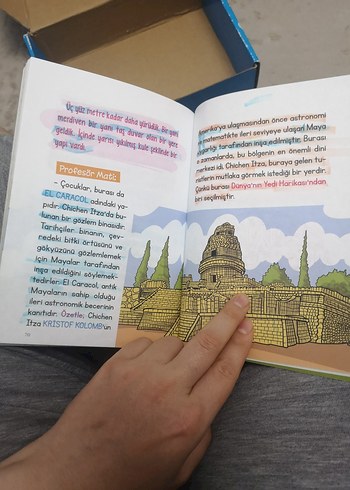 Üç yüz metre kadar daha yürüdük. Bir yanı
merdiven bir yanı taş duvar olan bir yere
geldik. İçinde yarım yıkılmış kule şeklinde bir
yapı vardı.
Profesör Mati:
– Çocuklar, burası da
EL CARACOL adındaki ya-
pıdır. Chichen Itza'da bu-
lunan bir gözlem binasıdır.
Tarihçiler, binanın, çev-
redeki bitki örtüsünü ve
gökyüzünü gözlemlemek
için Mayalar tarafından
inşa edildiğini söylemek-
tedirler. El Caracol, antik
Mayaların sahip olduğu
ileri astronomik becerinin
kanıtıdır. Özetle; Chichen
Itza KRİSTOF KOLOMB'un
Amerika'ya ulaşmasından önce astronomi
ve matematikte ileri seviyeye ulaşan Maya
uygarlığı tarafından inşa edilmiştir. Burası
o zamanlarda, bu bölgenin en önemli dini
merkezi idi. Chichen Itza, buraya gelen tu-
ristlerin mutlaka görmek istediği bir yerdir.
Çünkü burası Dünya'nın Yedi Harikası'ndan
biri seçilmiştir.